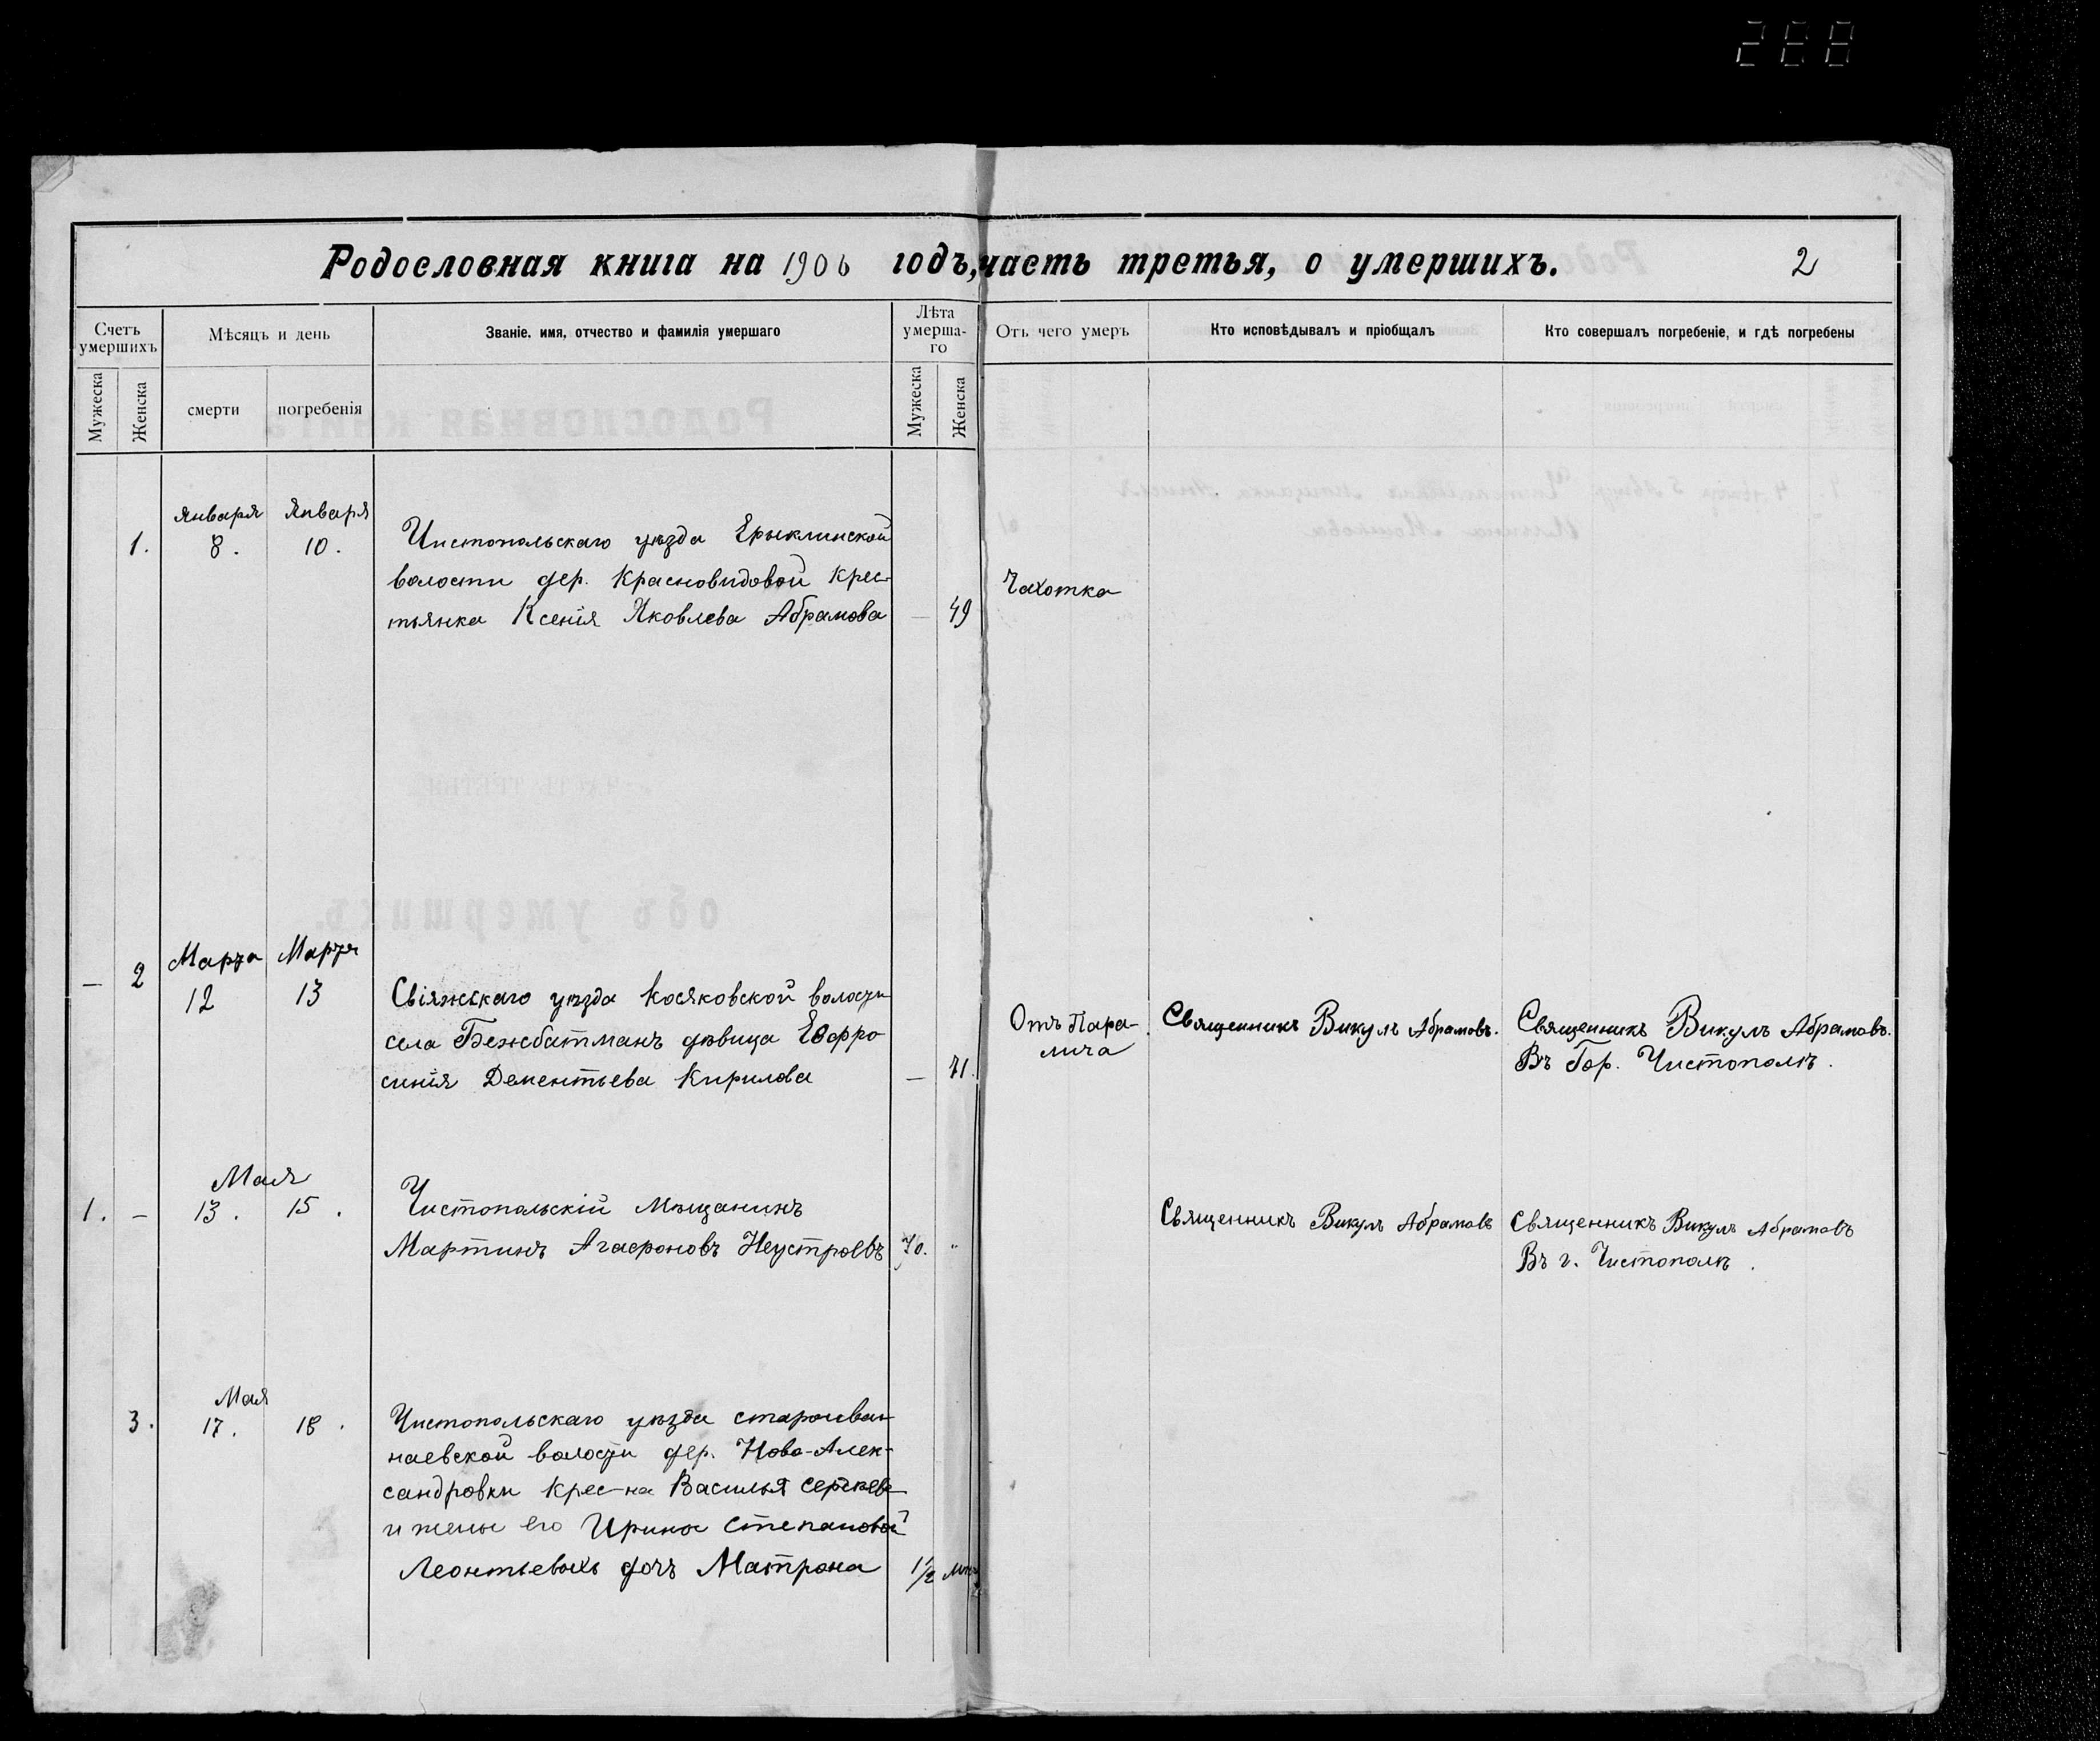 268
Родословная книга на 1906 годъ, часть третья, о умершихъ.
2
Счетъ умершихъ
Мѣсяцъ и день
Званіе, имя, отчество и фамилія умершаго
Лѣта умерша-
го
Отъ чего умеръ
Кто исповѣдывалъ и пріобщалъ
Кто совершалъ погребеніе, и гдѣ погребены
Мужеска
Женска
смерти
погребенія
Мужеска
Женска
Января Января
1. 8. 10.
Чистопольскаго уѣзда Ерыклинской
волости дер. Красновидовой Крес-
тьянка Ксенія Яковлева Абрамова
— 49
Чахотка
Марта Марта
— 2 12 13
Свіяжскаго уѣзда Косяковской волости
села Бежбатманъ дѣвица Евфро
синія Дементьева Кирилова
— 71.
Отъ Пара-
лича
Священникъ Викулъ Абрамовъ.
Священникъ Викулъ Абрамовъ.
Въ Гор. Чистополѣ.
Мая
1. — 13. 15.
Чистопольскій Мѣщанинъ
Мартинъ Агафоновъ Неустроевъ
70. "
Священникъ Викулъ Абрамовъ
Священникъ Викулъ Абрамовъ
Въ г. Чистополѣ.
Мая
3. 17. 18.
Чистопольскаго уѣзда староиван-
наевской волости дер. Ново-Алек-
сандровки Крес-на Василья
и жены его Ирины Степановой
Леонтьевыхъ дочь Матрона
1/2